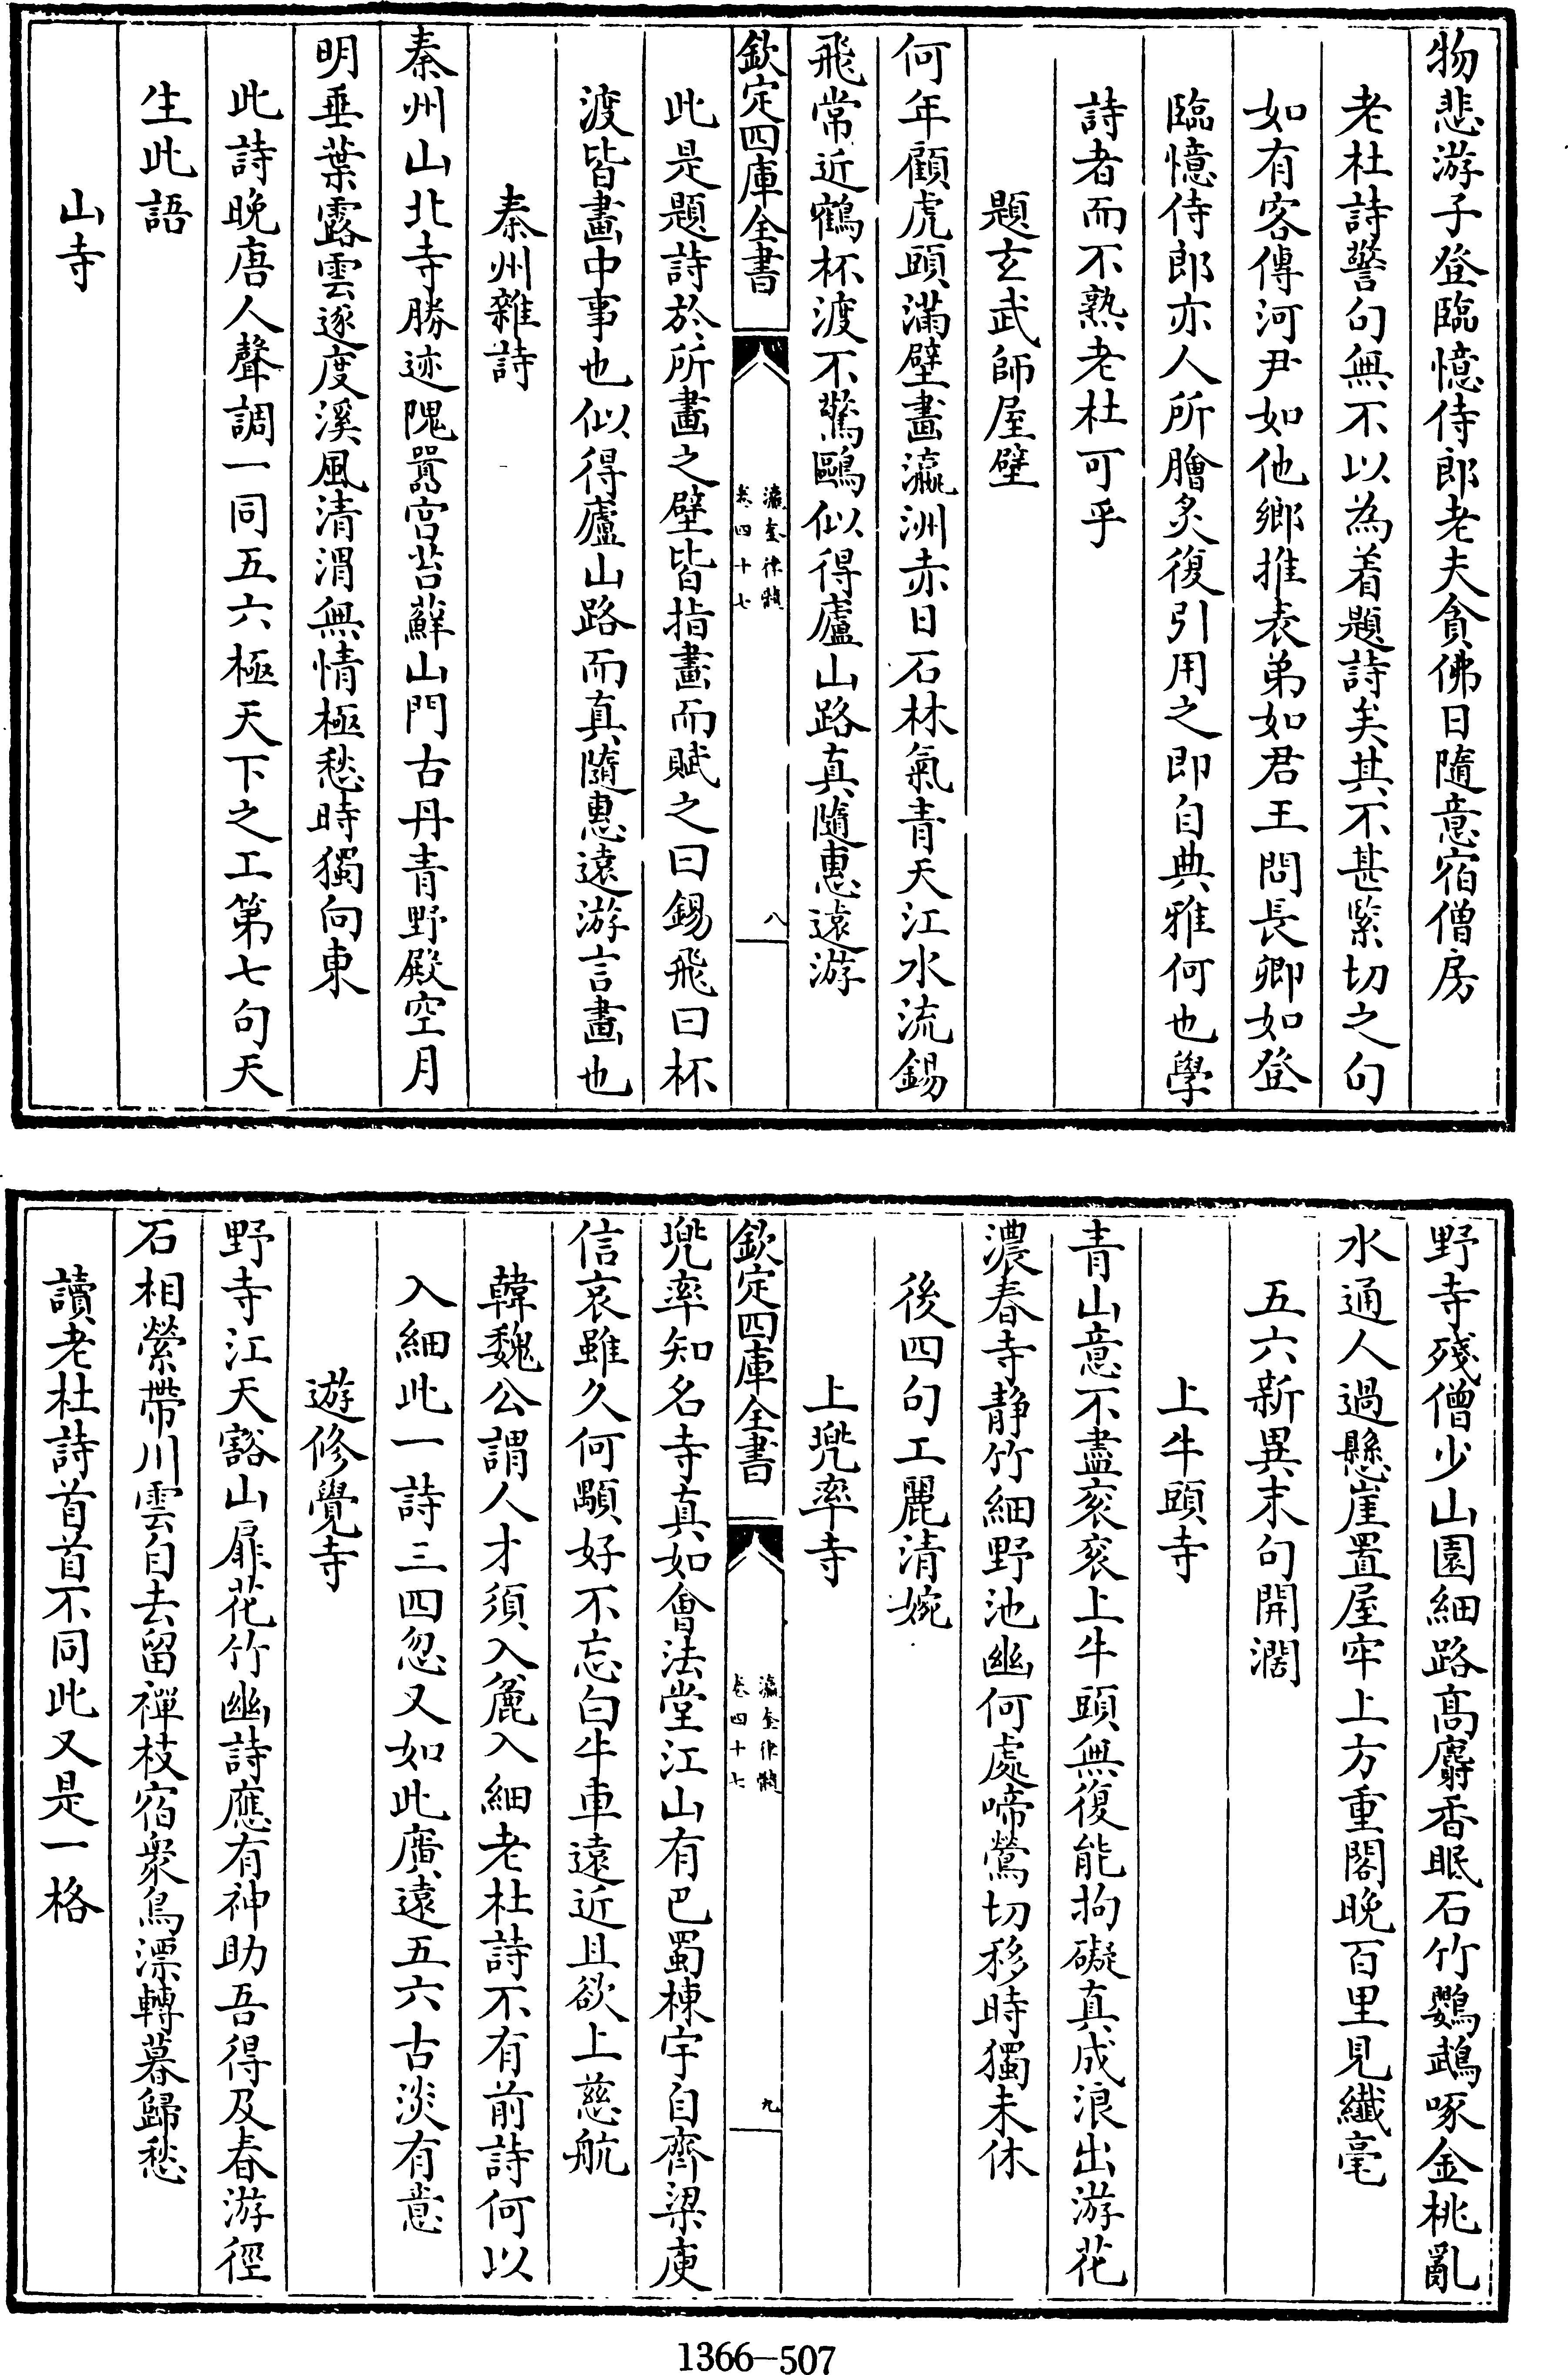 物悲游子登臨憶侍郎老夫貪佛日隨意宿僧房
老杜詩警句無不以為着題詩矣其不甚緊切之句
如有客傳河尹如他鄉推表弟如君王問長卿如登
臨憶侍郎亦人所膾炙復引用之即自典雅何也學
詩者而不熟老杜可乎
題玄武師屋壁
何年顧虎頭滿壁畫瀛洲赤日石林氣青天江水流錫
飛常近鶴杯渡不驚鷗似得廬山路真隨惠遠游
欽定四庫全書
瀛奎律髓
卷四十七
八
此是題詩於所畫之壁皆指畫而賦之曰錫飛曰杯
渡皆畫中事也似得廬山路而真隨惠遠游言畫也
秦州雜詩
秦州山北寺勝迹隗嚣宫苔蘚山門古丹青野殿空月
明垂葉露雲逐度溪風清渭無情極愁時獨向東
此詩晚唐人聲調一同五六極天下之工第七句天
生此語
山寺
野寺殘僧少山園細路髙麝香眠石竹鸚鵡啄金桃亂
水通人過懸崖置屋牢上方重閣晚百里見纖毫
五六新異末句開濶
上牛頭寺
青山意不盡衮衮上牛頭無復能拘礙真成浪出游花
濃春寺静竹細野池幽何處啼鶯切移時獨未休
後四句工麗清婉
上兠率寺
欽定四庫全書
瀛奎律髓
卷四十七
九
兠率知名寺真如會法堂江山有巴蜀棟宇自齊梁庾
信哀雖久何顒好不忘白牛車遠近且欲上慈航
韓魏公謂人才須入麄入細老杜詩不有前詩何以
入細此一詩三四忽又如此廣遠五六古淡有意
遊修覺寺
野寺江天豁山扉花竹幽詩應有神助吾得及春游徑
石相縈帶川雲自去留禪枝宿衆鳥漂轉暮歸愁
讀老杜詩首首不同此又是一格
1366-507